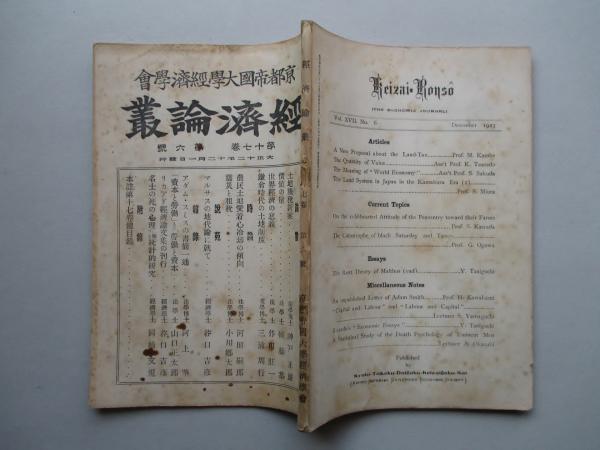 京都帝國大學經濟學會
經濟論叢
第十七卷 第六號
大正十二年十二月一日發行
論叢
土地増價税新案 神戸正雄
價値の量
世界經濟の意義 作田莊一
鎌倉時代の土地制度 三浦周行
時論
農民土地愛着心冷却の傾向 河田嗣郎
震災と租税 小川郷太郎
説苑
マルサスの地代論に就て 谷口吉彦
雜錄
アダム・スミスの書翰一通 河上肇
「資本と勞働」と「勞働と資本」 山口正太郎
リカアド經濟論文集の刊行 谷口吉彦
名士の死の心理の統計的研究 岡崎文規
附錄
本誌第十七卷總目錄
Keizai-Ronsô
(THE ECONOMIC JOURNAL)
Vol. XVII. No. 6 December 1923
Articles
A New Proposal about the Land-Tax Prof. M. Kambe
The Quantity of Value Ass't Prof. K.
The Meaning of "World Economy" Ass't Prof. S. Sakuda
The Land System in Japan in the Kamakura Era (2)
Prof. S. Miura
Current Topics
On the cold-hearted Attitude of the Peasantry toward their Farms
Prof. S. Kawada
The Catastrophe of black Saturday and Taxes
Prof. G. Ogawa
Essays
The Rent Theory of Malthus (end) Y. Taniguchi
Miscellaneous Notes
An unpublished Letter of Adam Smith Prof. H. Kawakami
"Capital and Labour" and "Labour and Capital"
Lecturer S. Yamaguchi
Ricardo's "Economic Essays" Y. Taniguchi
A Statistical Study of the Death Psychology of Eminent Men
Lecturer A. Okazaki
Published
by
Kyoto-Teikoku-Daigaku-Keizaigaku-Kai